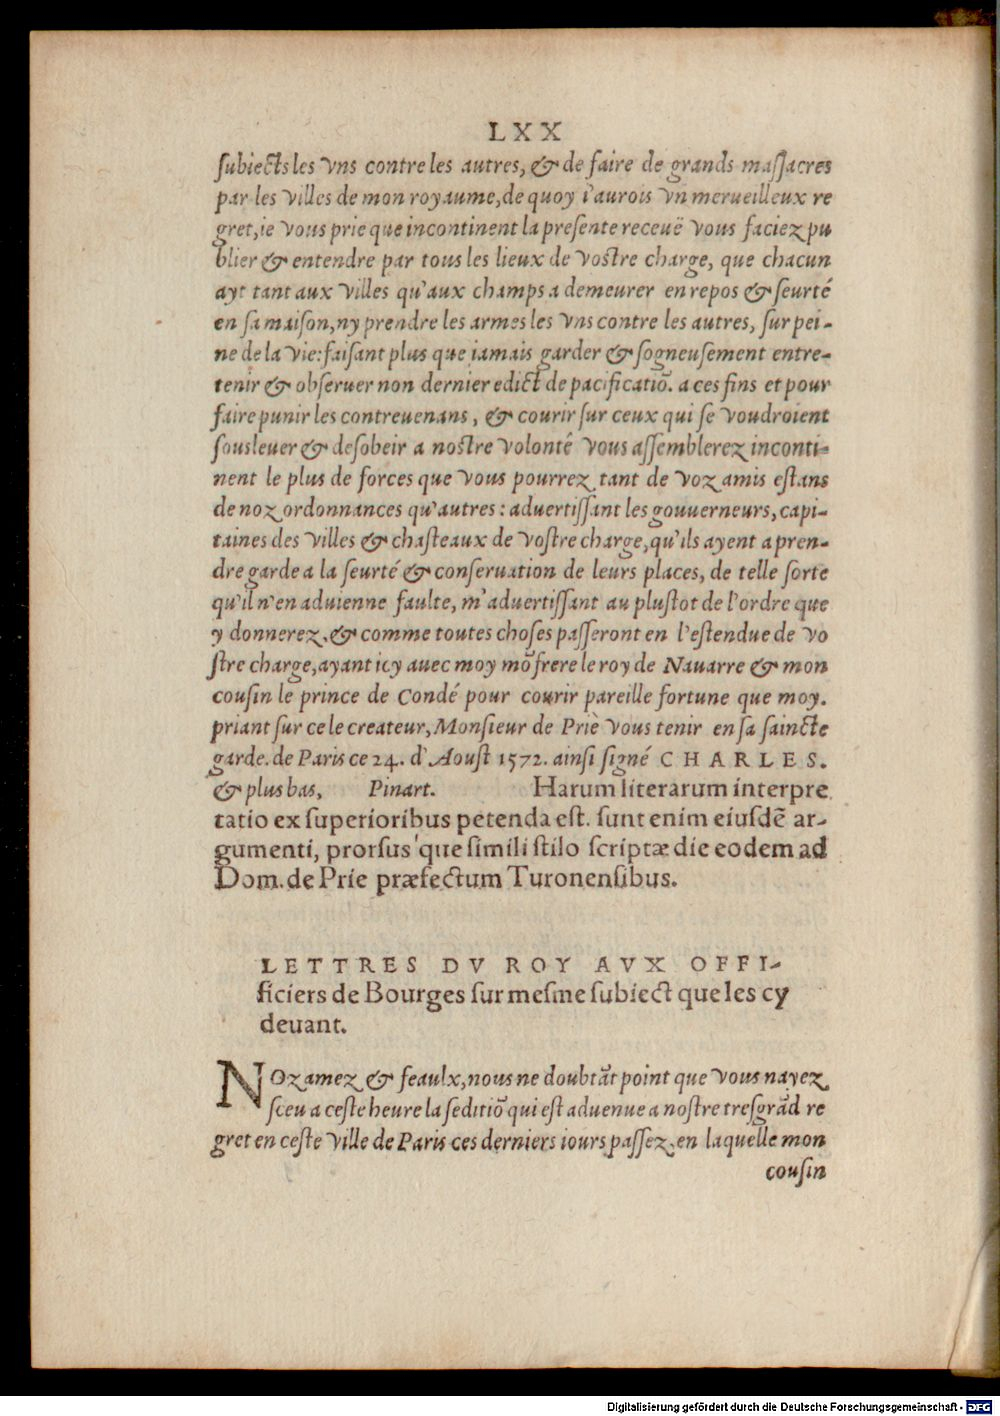 LXX
ſubiects les vns contre les autres, & de faire de grands maſſacres
par les villes de mon royaume, de quoy i'aurois vn merueilleux re
gret, ie vous prie que incontinent la preſente receuë vous faciez pu
blier & entendre par tous les lieux de voſtre charge, que chacun
ayt tant aux villes qu'aux champs a demeurer en repos & ſeurté
en ſa maiſon, ny prendre les armes les vns contre les autres, ſur pei-
ne de la vie: faiſant plus que iamais garder & ſogneuſement entre-
tenir & obſeruer non dernier edict de pacificatiō. a ces fins et pour
faire punir les contreuenans, & courir ſur ceux qui ſe voudroient
ſousleuer & deſobeir a noſtre volonté vous aſſemblerez inconti-
nent le plus de forces que vous pourrez tant de voz amis eſtans
de noz ordonnances qu'autres: aduertiſſant les gouuerneurs, capi-
taines des villes & chaſteaux de voſtre charge, qu'ils ayent a pren-
dre garde a la ſeurté & conſeruation de leurs places, de telle ſorte
qu'il n'en aduienne faulte, m'aduertiſſant au pluſtot de l'ordre que
y donnerez, & comme toutes choſes paſſeront en l'eſtendue de vo
ſtre charge, ayant icy auec moy mō frere le roy de Nauarre & mon
couſin le prince de Condé pour courir pareille fortune que moy.
priant ſur ce le createur, Monſieur de Priè vous tenir en ſa ſaincte
garde. de Paris ce 24. d'Aouſt 1572. ainſi ſigné CHARLES.
& plus bas, Pinart. Harum literarum interpre
tatio ex ſuperioribus petenda eſt. ſunt enim eiuſdē ar-
gumenti, prorſus'que ſimili ſtilo ſcriptæ die eodem ad
Dom. de Prie præfectum Turonenſibus.
LETTRES DV ROY AVX OFFI-
ficiers de Bourges ſur meſme ſubiect que les cy
deuant.
NOz amez & feaulx, nous ne doubtāt point que vous nayez
ſceu a ceſte heure la ſeditiō qui eſt aduenue a noſtre tresgrād re
gret en ceſte ville de Paris ces derniers iours paſſez, en laquelle mon
couſin
Digitalisierung gefördert durch die Deutsche Forschungsgemeinschaft - DFG